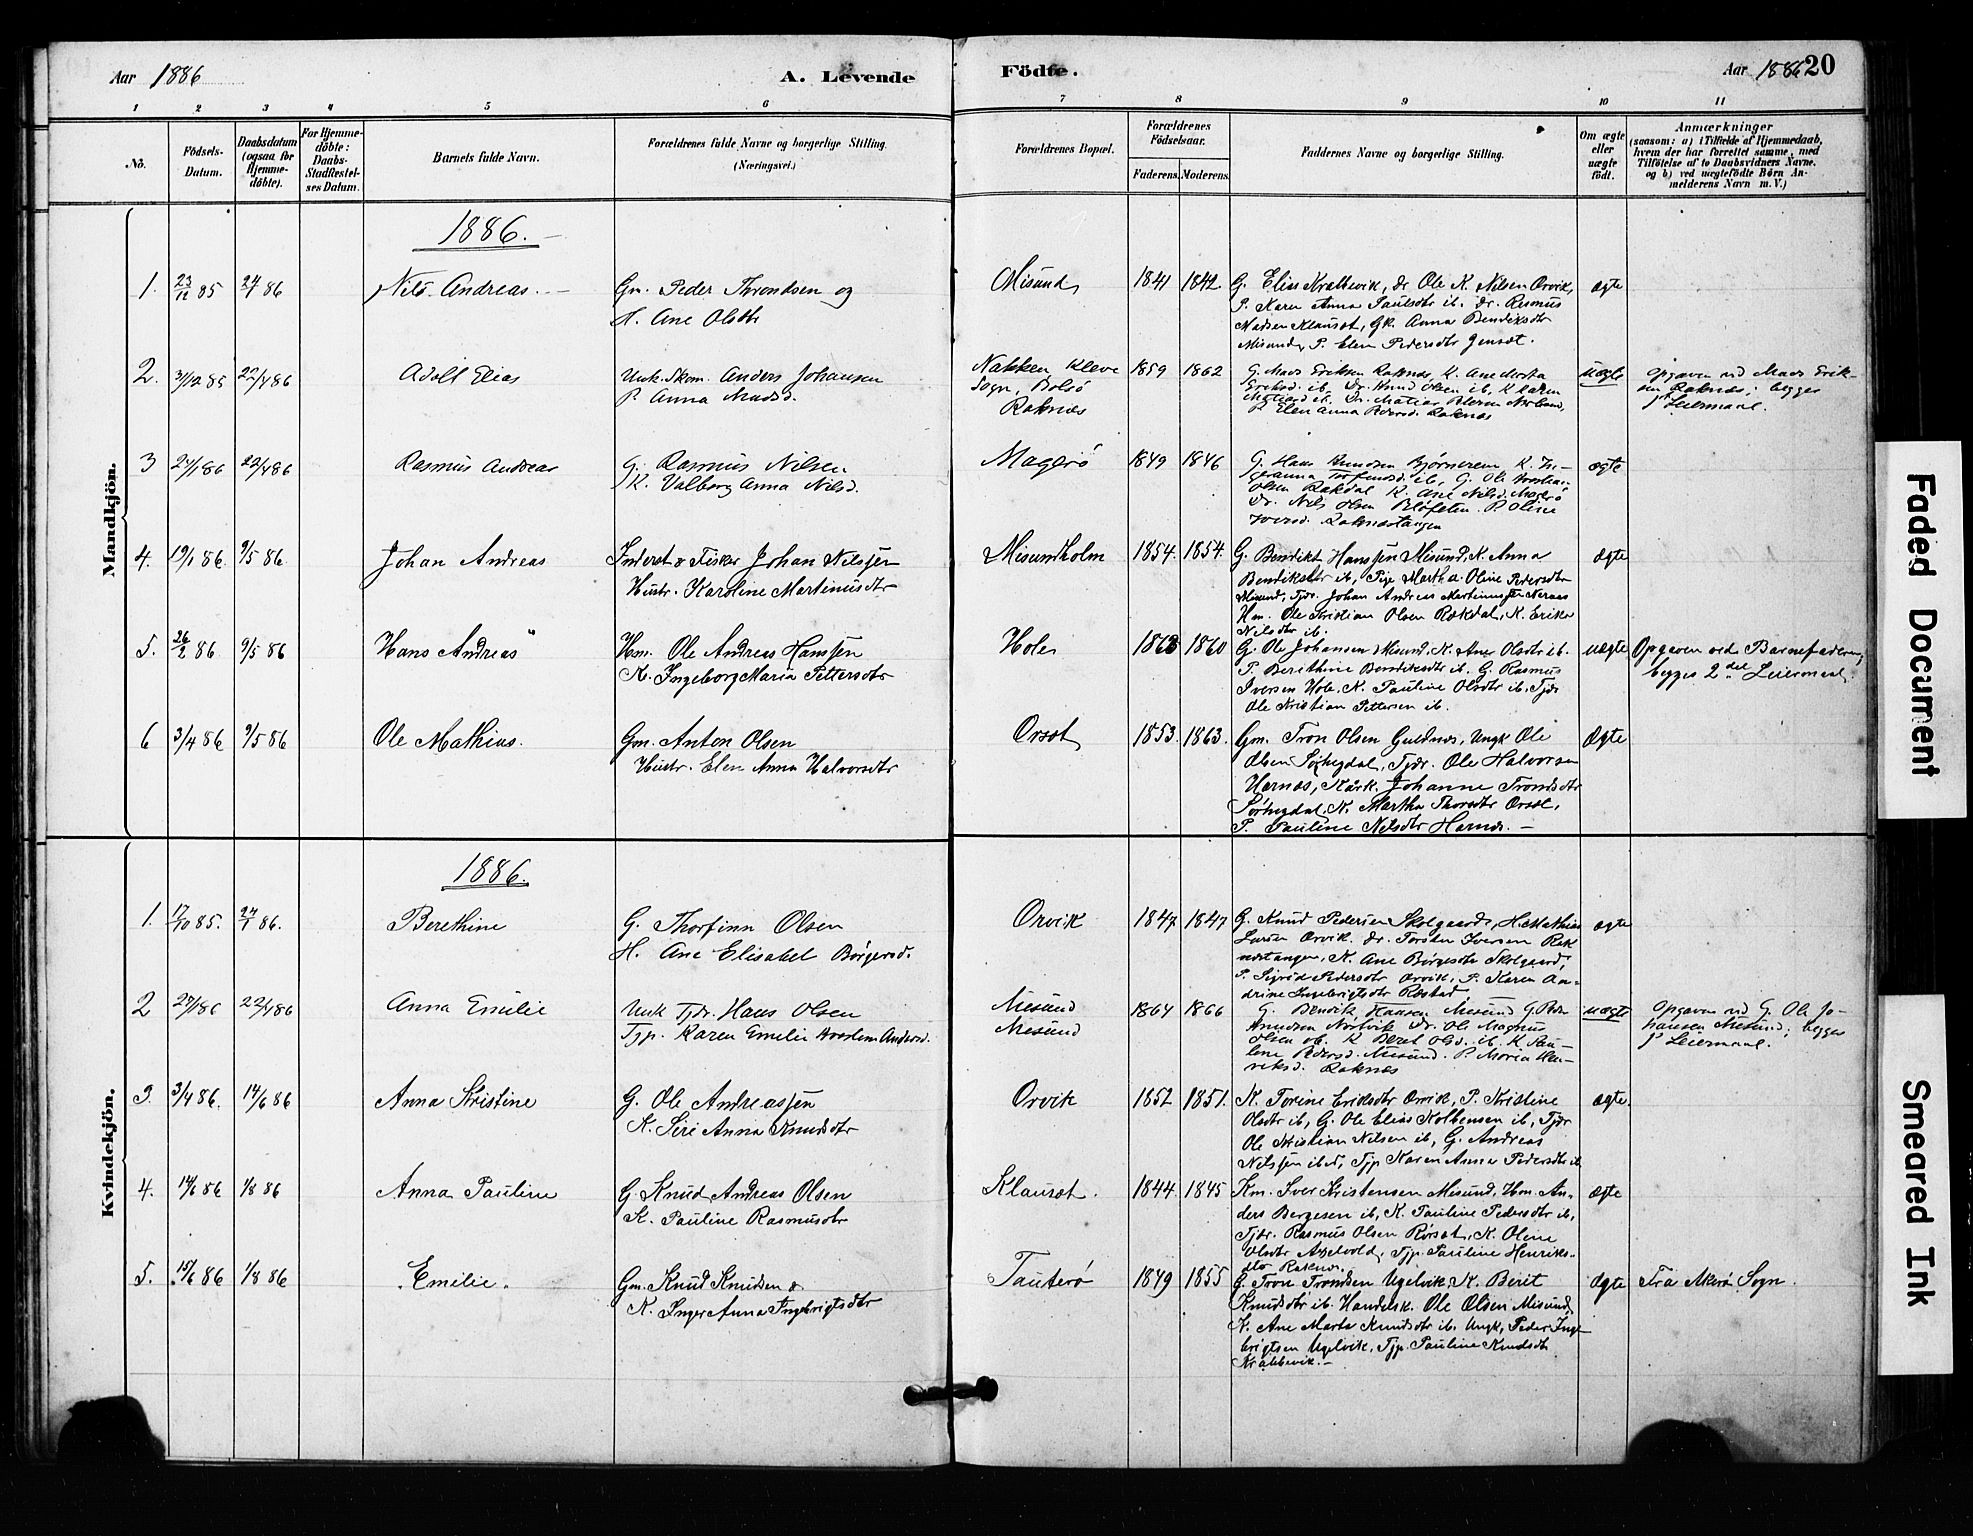 Aar 1886
A. Levende
Födte.
Aar 1886 20
1 2 3 4 5 6 7 8 9 10 11
No.
Födsels-
Datum.
Daabsdatum
(ogsaa for
Hjemme-
döbte).
For Hjemme-
döbte:
Daabs-
Stadfestel-
ses Datum.
Barnets fulde Navn.
Forældrenes fulde Navne og borgerlige Stilling.
(Næringsvei.)
Forældrenes Bopæl.
Forældrenes
Födselsaar.
Faderens. Moderens.
Faddernes Navne og borgerlige Stilling.
Om ægte
eller
uægte
födt.
Anmærkninger
(saasom: a) i Tilfælde af Hjemmedaab,
hvem der har forrettet samme, med
Tilföielse af to Daabsvidners Navne,
og b) ved uægtefödte Börn An-
melderens Navn m. V.)
Mandkjön.
1886.
1. 23/12 85 24/1 86 Nils Andreas. Gm. Peder Throndsen og
H. Ane Olsdtr
Misund 1841 1842 G. Elias Krakevik, dr Ole K. Nilsen Orvik,
P. Karen Anna Paulsdtr ib. dr. Rasmus
Madsen Klauset, Gk. Anna Bendiksdtr
Misund, P. Elen Pedersdtr Jenset.
ægte
2. 31/12 85 22/4 86 Adolf Elias Unk. Skom. Anders Johansen
P. Anna Madsd.
Nakken Kleve
Sogn, Bolsö
Raknes
1859 1862 G. Mads Eriksen Raknes, K. Ane Marta
Eriksd. ib. Dr. Knud Olsen ib, K Karen
P. Elen Anna Pedersd. Raknes
uægte
Opgaven ved Mads Erik-
sen Raknes; begges
1ste Leiermaal.
3 24/1 86 22/4 86 Rasmus Andreas G. Rasmus Nilsen
K. Valborg Anna Nilsd.
Magerö 1849 1846 G. Hans Knudsen Björnerem K. In-
geranna Torfinnsd. ib, G. Ole Kristian
Olsen Rakdal K. Ane Nilsd. Magerö
Dr. Nils Olsen P. Oline
Iversd. Raknestangen
ægte
4. 19/1 86. 9/5 86. Johan Andreas Inderst & Fisker Johan Nilssen
Hustr. Karoline Martinusdtr
Misundholm 1854. 1854. G. Bendikt Hanssen Misund, K. Anna
Bendiksdtr ib, Pige Martha Oline Pedersdtr
Misund, Tjdr. Johan Andreas Martinussen Neraas
Hm. Ole Kristian Olsen Rakdal, K. Erika
Nilsdtr ib.
Ægte
5. 26/2 86. 9/5 86 Hans Andreas Hm. Ole Andreas Hanssen
K. Ingeborg Maria Pettersdtr
Hole 1863 1860 G. Ole Johansen Misund, K. Ane Olsdtr ib.
P. Berithine Bendiksdtr ib. G. Rasmus
Iversen Hole, K. Pauline Olsdtr ib. Tjdr
Ole Kristian Pettersen ib.
uægte Opgaven ved Barnefaderen;
begges 2det Leiermaal.
6 3/4 86 9/5 86 Ole Mathias. Gm. Anton Olsen
Hustr. Elen Anna Halvorsdtr
Orset 1853. 1863. Gm. Tron Olsen Guldnes, Ungk Ole
Olsen Sörhegdal, Tjdr. Ole Halvorsen
Harnes, Kårk. Johanne Trondsdtr
Sörhegdal, K. Martha Thorsdtr Orset,
P. Pauline Nilsdtr Harnes. —
Ægte
Kvindekjön.
1886.
1. 17/10 85. 24/1 86. Berethine G. Thorfinn Olsen
H. Ane Elisabet Börgersd.
Orvik 1847 1847 G. Knud Pedersen Skolgaard, H. Mathias
Larsen Orvik. dr. Torsten Iversen Rak
nestangen, K. Ane Börgesdtr Skolgaard,
P. Sigrid Pedersdtr Orvik, P. Karen An-
drine Ingebrigtsdtr Ræstad
ægte
2 27/1 86 22/4 86 Anna Emilie Unk Tjdr. Hans Olsen
Tjp. Karen Emilie Andersd.
Misund
Misund
1864 1866 G. Bendik Hansen Misund G. Peder
Knudsen Nörvik Dr. Ole Magnus
Olsen ib. K Beret Olsd. ib. K Pau-
line Pedersd. Misund. P. Maria Hen-
riksd. Raknes
uægte
Opgaven ved G. Ole Jo-
hansen Misund; begges
1ste Leiermaal.
3. 3/4 86. 14/6 86 Anna Kristine G. Ole Andreassen
K. Siri Anna Knudsdtr
Orvik 1852 1851. K. Torine Eriksdtr Orvik, P. Kristine
Olsdtr ib, G. Ole Elias Kolbensen ib, Tjdr
Ole Kristian Nilsen ib, G. Andreas
Nilssen ibd, Tjp Karen Anna Pedersdtr ib
ægte.
4. 14/6 86 1/8 86 Anna Pauline G Knud Andreas Olsen
K. Pauline Rasmusdtr
Klauset. 1844. 1845 Km. Iver Kristensen Misund, Hm. An-
ders Bergesen ib, K. Pauline Pedersdtr ib,
Tjdr. Rasmus Olsen Rörset, K. Oline
Olsdtr Axelvold, Tjp. Pauline Henriks-
dtr Raknes.
Ægte
5. 15/6 86 1/8 86 Emilie. Gm. Knud Knudsen &
K. Inger Anna Ingebrigtsdtr
Tauterö 1849 1855 G. Tron Trondsen Ugelvik, K. Berit
Knudsdtr ib. Handelsk. Ole Olsen Misund,
K. Ane Marta Knudsdtr ib. Ungk, Peder Inge
brigtsen Ugelvik, Tjp Pauline Knudsdtr
Krakkevik. —
Ægte Fra Akerö Sogn.
Faded Document
Smeared Ink